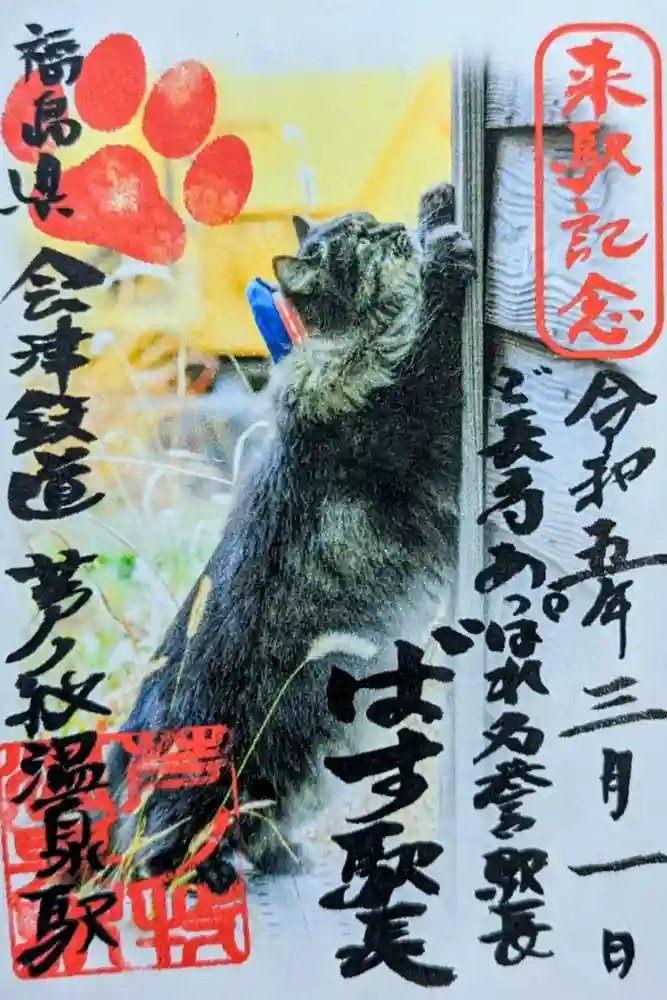 来駅記念
令和五年三月一日
ご長寿あっぱれ名誉駅長
ばす駅長
福島県 会津鉄道 芦ノ牧温泉駅